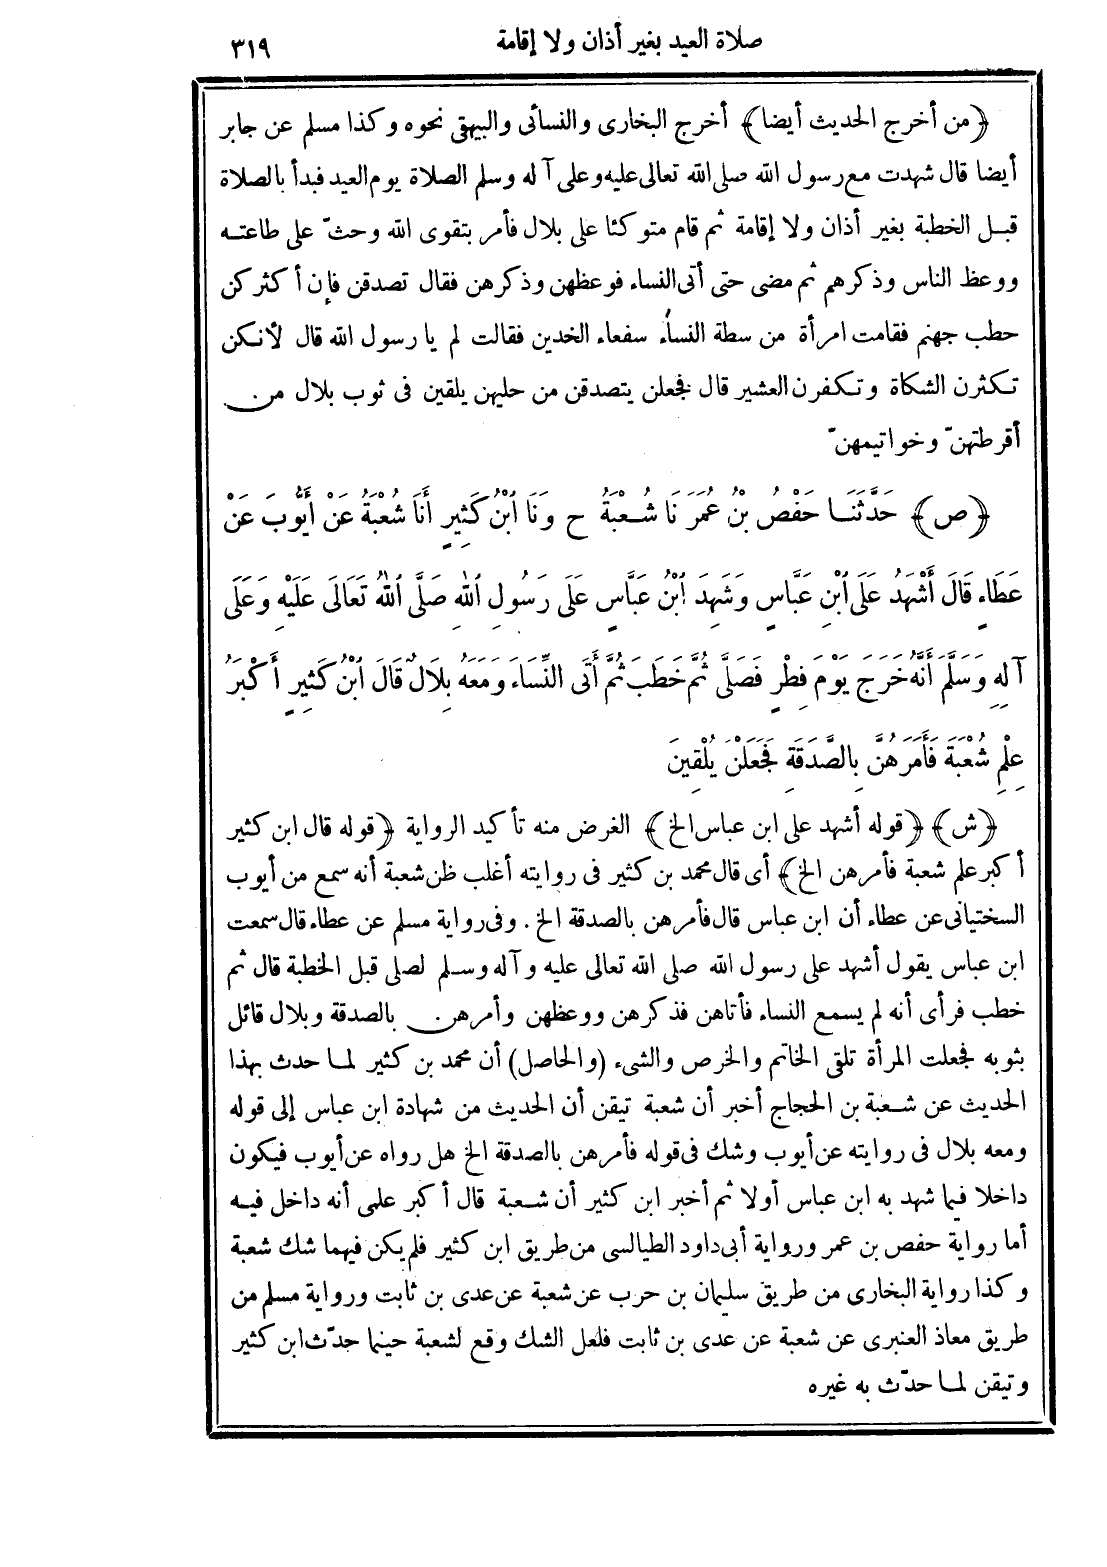 صلاة العيد بغير أذان ولا إقامة ٣١٩
﴿من أخرج الحديث أيضا﴾ أخرج البخارى والنسائى والبيهقى نحوه وكذا مسلم عن جابر
أيضا قال شهدت مع رسول الله صلى الله تعالى عليه وعلى آله وسلم الصلاة يوم العيد فبدأ بالصلاة
قبل الخطبة بغير أذان ولا إقامة ثم قام متوكئا على بلال فأمر بتقوى الله وحثّ على طاعته
ووعظ الناس وذكرهم ثم مضى حتى أتى النساء فوعظهن وذكرهن فقال تصدقن فإن أكثركن
حطب جهنم فقامت امرأة من سطة النساء سفعاء الخدين فقالت لم يا رسول الله قال لأنكن
تكثرن الشكاة وتكفرن العشير قال فجعلن يتصدقن من حليهن يلقين فى ثوب بلال من
أقرطتهنّ وخواتيمهنّ
﴿ص﴾ حَدَّثَنَا حَفْصُ بْنُ عُمَرَ نَا شُعْبَةُ ح وَنَا ابْنُ كَثِيرٍ أَنَا شُعْبَةُ عَنْ أَيُّوبَ عَنْ
عَطَاءٍ قَالَ أَشْهَدُ عَلَى ابْنِ عَبَّاسٍ وَشَهِدَ ابْنُ عَبَّاسٍ عَلَى رَسُولِ اللهِ صَلَّى اللهُ تَعَالَى عَلَيْهِ وَعَلَى
آلِهِ وَسَلَّمَ أَنَّهُ خَرَجَ يَوْمَ فِطْرٍ فَصَلَّى ثُمَّ خَطَبَ ثُمَّ أَتَى النِّسَاءَ وَمَعَهُ بِلَالٌ قَالَ ابْنُ كَثِيرٍ أَكْبَرُ
عِلْمِ شُعْبَةَ فَأَمَرَهُنَّ بِالصَّدَقَةِ فَجَعَلْنَ يُلْقِينَ
﴿ش﴾ ﴿قوله أشهد على ابن عباس الخ﴾ الغرض منه تأكيد الرواية ﴿قوله قال ابن كثير
أكبر علم شعبة فأمرهن الخ﴾ أى قال محمد بن كثير فى روايته أغلب ظن شعبة أنه سمع من أيوب
السختيانى عن عطاء أن ابن عباس قال فأمرهن بالصدقة الخ . وفى رواية مسلم عن عطاء قال سمعت
ابن عباس يقول أشهد على رسول الله صلى الله تعالى عليه وآله وسلم لصلى قبل الخطبة قال ثم
خطب فرأى أنه لم يسمع النساء فأتاهن فذكرهن ووعظهن وأمرهن بالصدقة وبلال قائل
بثوبه فجعلت المرأة تلقى الخاتم والخرص والشىء (والحاصل) أن محمد بن كثير لما حدث بهذا
الحديث عن شعبة بن الحجاج أخبر أن شعبة تيقن أن الحديث من شهادة ابن عباس إلى قوله
ومعه بلال فى روايته عن أيوب وشك فى قوله فأمرهن بالصدقة الخ هل رواه عن أيوب فيكون
داخلا فيما شهد به ابن عباس أولا ثم أخبر ابن كثير أن شعبة قال أكبر علمى أنه داخل فيه
أما رواية حفص بن عمر ورواية أبى داود الطيالسى من طريق ابن كثير فلم يكن فيهما شك شعبة
وكذا رواية البخارى من طريق سليمان بن حرب عن شعبة عن عدى بن ثابت ورواية مسلم من
طريق معاذ العنبرى عن شعبة عن عدى بن ثابت فلعل الشك وقع لشعبة حينما حدّث ابن كثير
وتيقن لما حدّث به غيره